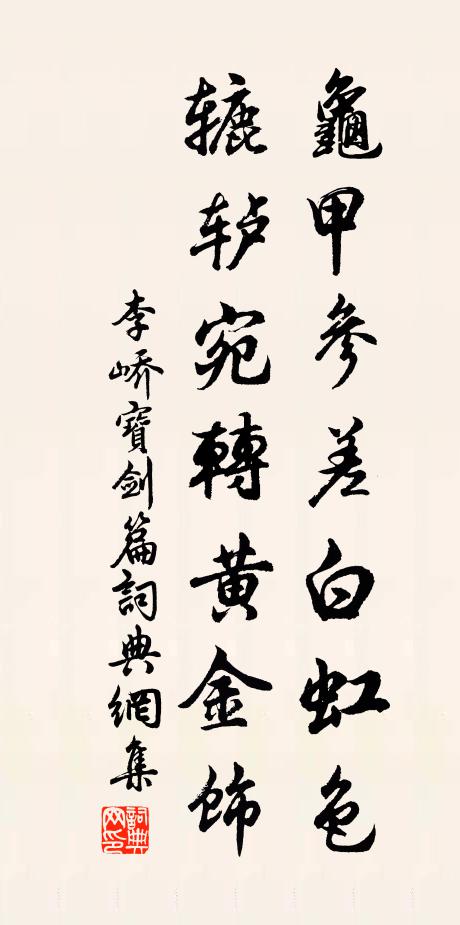 龜甲參差白虹色
辘轳宛轉黄金飾
李嶠寶劍篇詞典網集
詞典网印